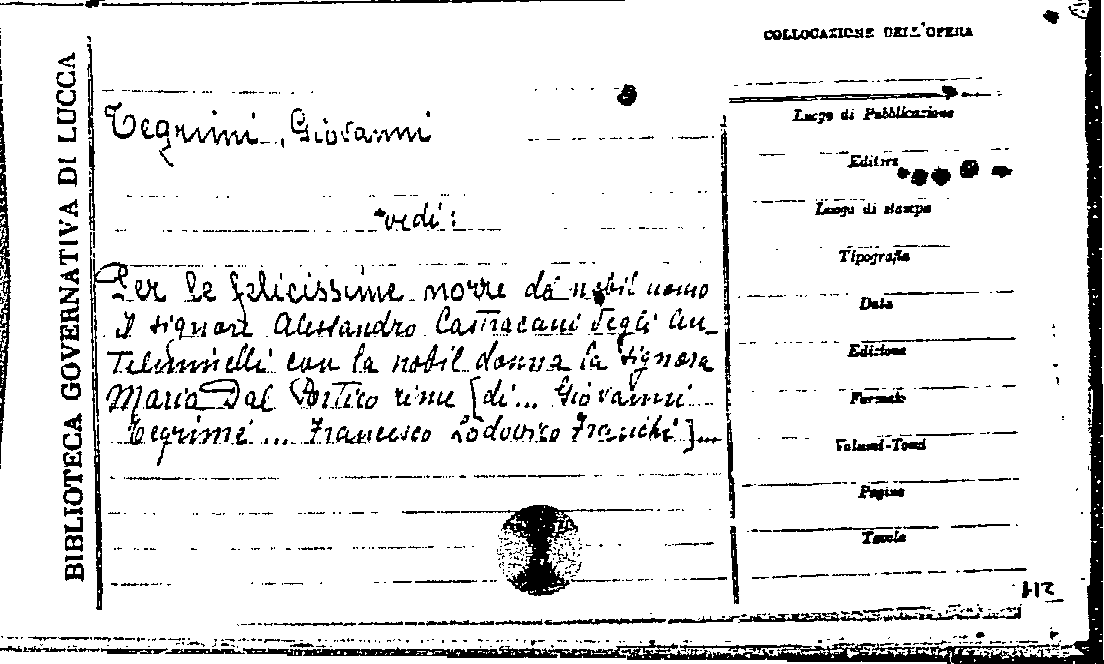 BIBLIOTECA GOVERNATIVA DI LUCCA
Tegrimi, Giovanni
vedi:
Per le felicissime nozze del nobil uomo
il signore Alessandro Castracani degli An-
telminelli con la nobil donna la signora
Maria Dal Portico rime [di... Giovanni
Tegrimi ... Francesco Lodovico Franchi]...
COLLOCAZIONE DELL'OPERA
Luogo di Pubblicazione
Editore
Luogo di stampa
Tipografia
Data
Edizione
Formato
Volumi-Tomi
Pagine
Tavole